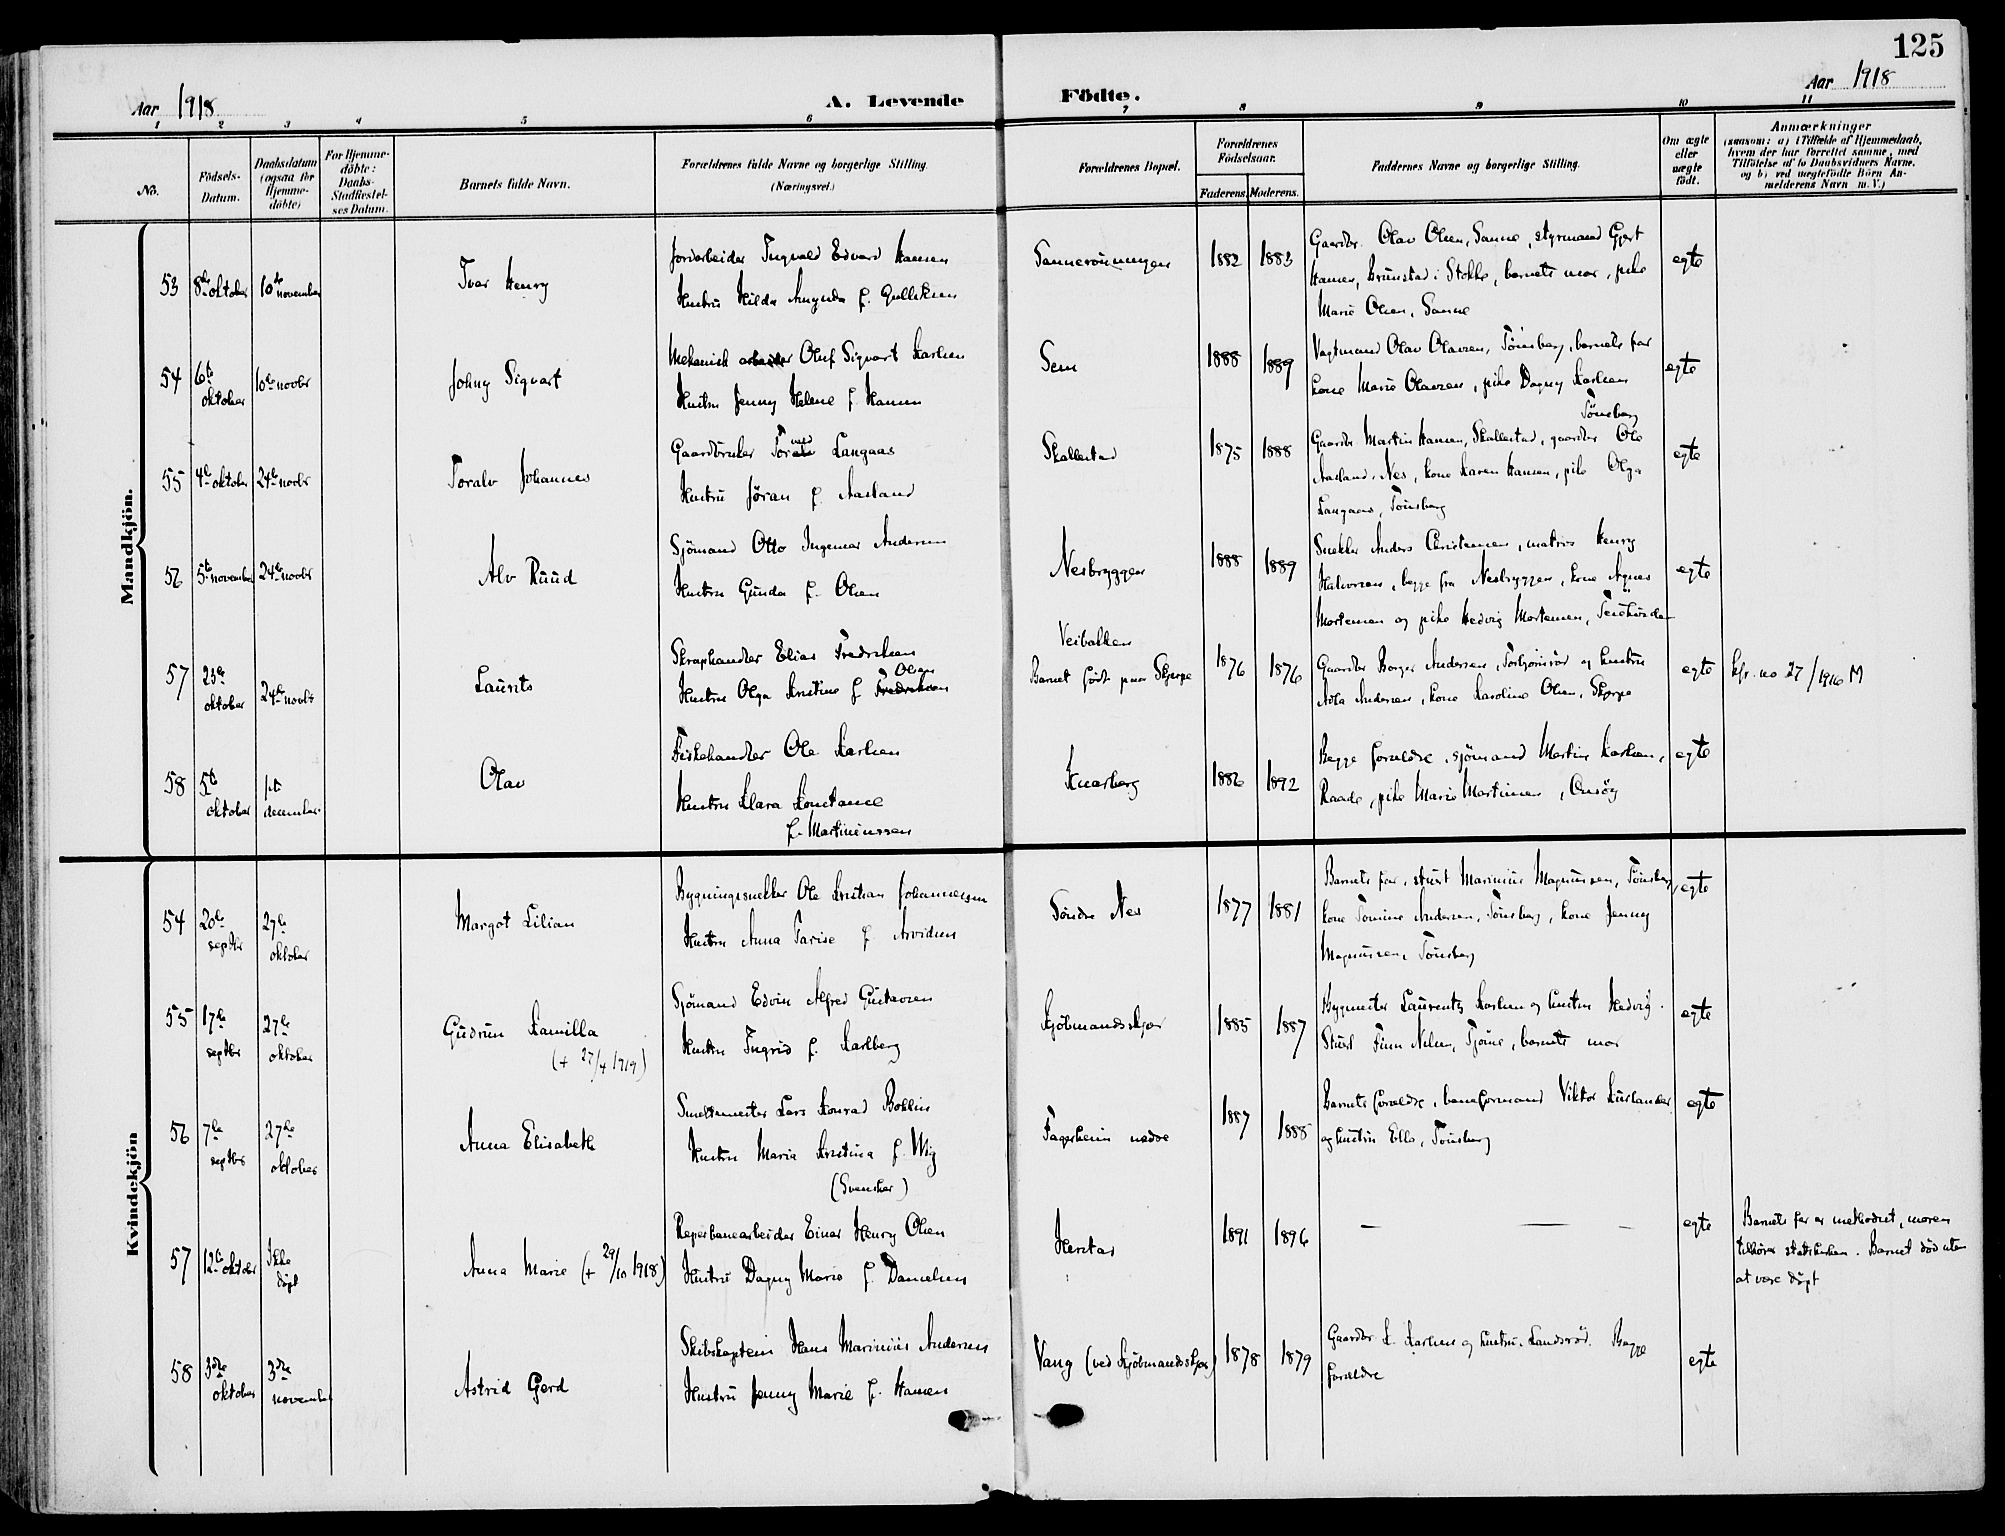 125
Aar 1918
A. Levende Födte.
Aar 1918
1 2 3 4 5 6 7 8 9 10 11
No.
Födsels-Datum.
Daabsdatum (ogsaa for Hjemme-döbte)
For Hjemme-döbte: Daabs-Stadfæstel-ses Datum.
Barnets fulde Navn.
Forældrenes fulde Navne og borgerlige Stilling. (Næringsvei.)
Forældrenes Bopæl.
Forældrenes Födselsaar.
Faderens. Moderens.
Faddernes Navne og borgerlige Stilling.
Om ægte eller uægte födt.
Anmærkninger
(saasom: a) i Tilfælde af Hjemmedaab,
hvem der har forrettet samme, med
Tilföielse af to Daabsvidners Navne,
og b) ved uægtefödte Börn An-
melderens Navn m. V.)
Mandkjön.
53 8de oktober 10de november
Ivar Henry
Jordarbeider Ingvald Edvard Hansen
Hustru Hilda Amanda f. Gulliksen
Sannerönningen
1882 1883
Gaardbr. Olav Olsen, Sanne, styrmand Gjert
Hansen, Brunstad i Stokke, barnets mor, pike
Marie Olsen, Sanne
egte
54 6te oktober 10de novbr
Johny Sigvart
Mekanisk arbeider Oluf Sigvart Karlsen
Hustru Jenny Helene f. Hansen
Sem
1888 1889
Vagtmand Olav Olavsen, Tönsberg, barnets far
kone Marie Olavsen, pike Dagny Karlsen
Tönsberg
egte
55 4de oktober 24de novbr
Toralv Johannes
Gaardbruker Langaas
Hustru Jöran f. Aasland
Skallestad
1875 1888
Gaardbr Martin Hansen, Skallestad, gaardbr Ole
Aasland, Nes, kone Karen Hansen, pike Olga
Langaas, Tönsberg
egte
56 5te november 24de novbr
Alv Ruud
Sjömand Otto Ingemar Andersen
Hustru Gunda f. Olsen
Nesbryggen
1888 1889
Snekker Anders Christensen, matros Henry
Halvorsen, begge fra Nesbryggen, kone Agnes
Mortensen og pike Hedvig Mortensen,
egte
57 23de oktober 24de novbr
Laurits
Skraphandler Elias Fredriksen
Hustru Olga Kristine f. Olsen
Veibakken
Barnet födt paa Skjerpe
1876 1876
Gaardbr Borger Andersen, og hustru
Adla Andersen, kone Karoline Olsen, Skjerpe
egte
kfr. no 27/1916 M
58 5te oktober 1ste december
Olav
Fiskehandler Ole Karlsen
Hustru Klara Konstance
f. Martiniussen
Knarberg
1886 1892
Begge forældre, sjömand Martin Karlsen,
Raade, pike Marie Martinsen,
egte
Kvindekjön
54 20de septbr 27de oktober
Margot Lilian
Bygningssnekker Ole Kristian Johannessen
Hustru Anna f. Arvidsen
Söndre Nes
1877 1881
Barnets far, stuert Marinius Magnussen, Tönsberg,
kone Tomine Andersen, Tönsberg, kone Jenny
Magnussen, Tönsberg
egte
55 17de septbr 27de oktober
Gudrun Kamilla
(+ 27/4 1919)
Sjömand Edvin Alfred Gustavsen
Hustru Ingrid f. Karlberg
Kjöbmandsskjær
1885 1887
Bygmester Laurentz Karlsen og hustru Hedvig.
Stuert Finn Nilsen, Tjöme, barnets mor
egte
56 7de septbr 27de oktober
Anna Elisabeth
Smeltemester Lars Konrad Bohlin
Hustru Maria Kristina f. Wiig
(Svensker)
Fagerheim nedre
1887 1888
Barnets forældre, baneformand Viktor Kurlander
og hustru Ella, Tönsberg
egte
57 12te oktober Ikke döpt
Anna Marie (+ 29/10 1918)
Reperbanearbeider Einar Henry Olsen
Hustru Dagny Marie f. Danielsen
Herstad
1891 1896
— — —
egte
Barnets far er methodist, moren
tilhörer statskirken. Barnet död uten
at være döpt
58 3die oktober 3die november
Astrid Gerd
Skibskaptein Hans Marinius Andersen
Hustru Jenny Marie f. Hansen
Vang (ved Kjöbmandsskjær)
1878 1879
Gaardbr K. Karlsen og hustru, Landsröd. Begge
forældre
egte